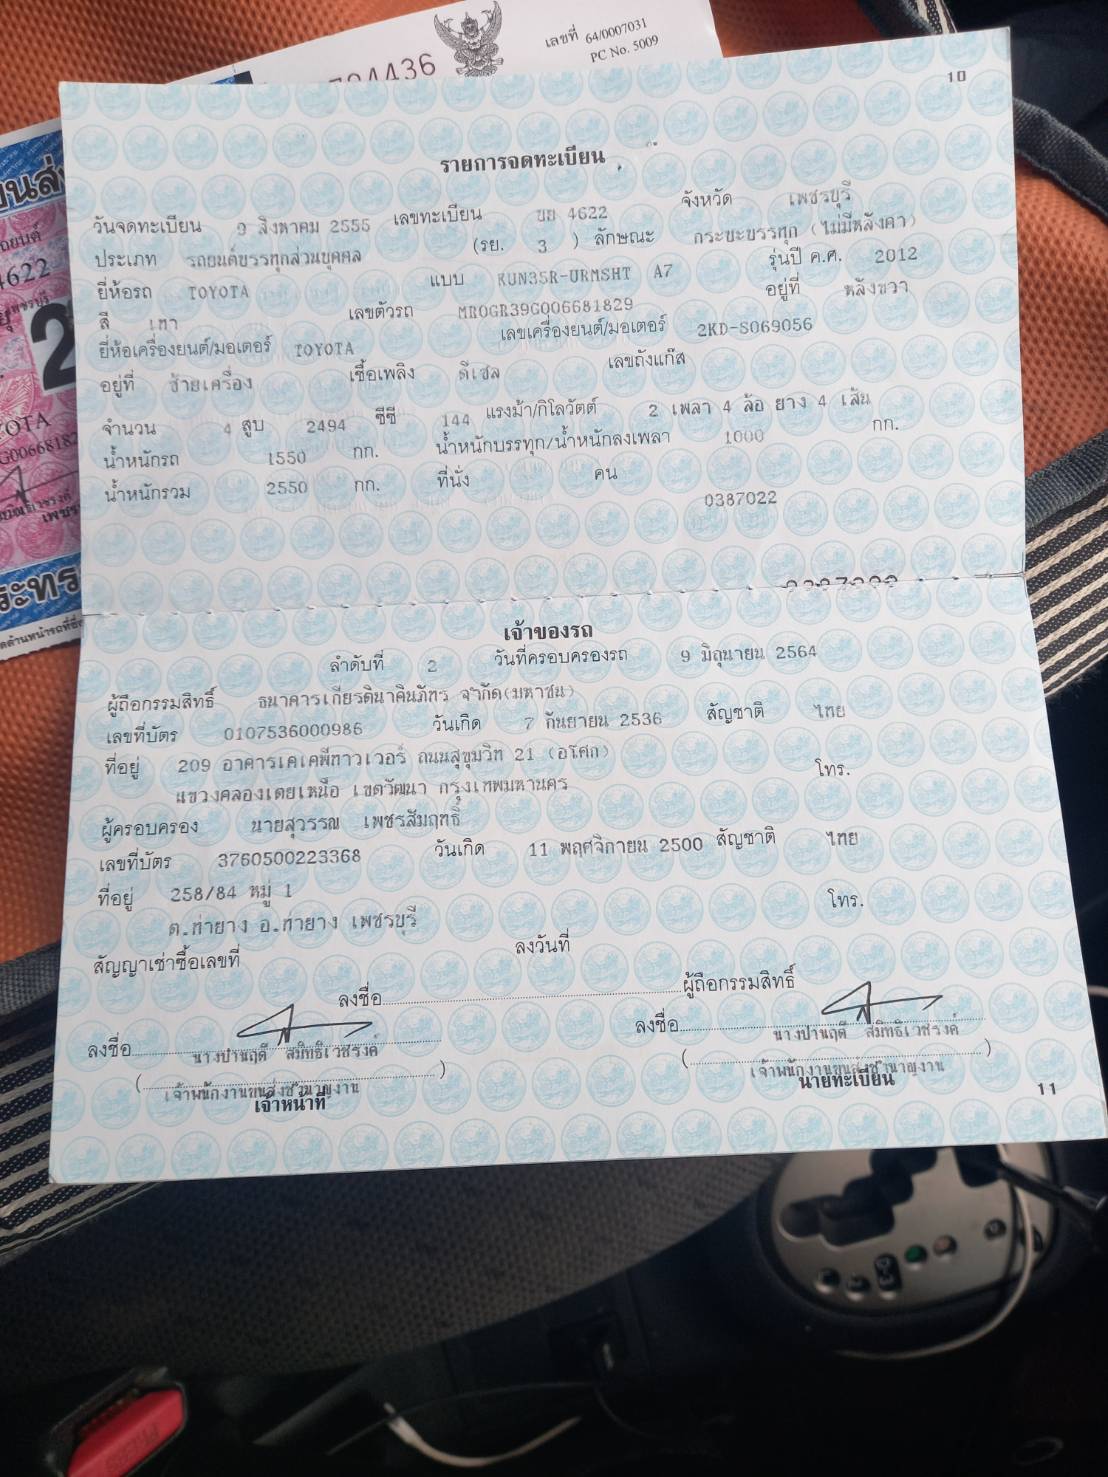 4436
เลขที่ 64/0007031
PC No. 5009
10
รายการจดทะเบียน
วันจดทะเบียน 9 สิงหาคม 2555 เลขทะเบียน บย 4622 จังหวัด เพชรบุรี
ประเภท รถยนต์บรรทุกส่วนบุคคล (รย. 3 ) ลักษณะ กระบะบรรทุก (ไม่มีหลังคา)
ยี่ห้อรถ TOYOTA แบบ KUN35R-URMSHT A7 รุ่นปี ค.ศ. 2012
สี เทา เลขตัวรถ MR0GR39G006681829 อยู่ที่ หลังขวา
ยี่ห้อเครื่องยนต์/มอเตอร์ TOYOTA เลขเครื่องยนต์/มอเตอร์ 2KD-S069056
อยู่ที่ ซ้ายเครื่อง เชื้อเพลิง ดีเซล เลขถังแก๊ส
จำนวน 4 สูบ 2494 ซีซี 144 แรงม้า/กิโลวัตต์ 2 เพลา 4 ล้อ ยาง 4 เส้น
น้ำหนักรถ 1550 กก. น้ำหนักบรรทุก/น้ำหนักลงเพลา 1000 กก.
น้ำหนักรวม 2550 กก. ที่นั่ง คน
0387022
เจ้าของรถ
ลำดับที่ 2 วันที่ครอบครองรถ 9 มิถุนายน 2564
ผู้ถือกรรมสิทธิ์ ธนาคารเกียรตินาคินภัทร จำกัด(มหาชน)
เลขที่บัตร 0107536000986 วันเกิด 7 กันยายน 2536 สัญชาติ ไทย
ที่อยู่ 209 อาคารเคเคพีทาวเวอร์ ถนนสุขุมวิท 21 (อโศก) โทร.
แขวงคลองเตยเหนือ เขตวัฒนา กรุงเทพมหานคร
ผู้ครอบครอง นายสุวรรณ เพชรสัมฤทธิ์
เลขที่บัตร 3760500223368 วันเกิด 11 พฤศจิกายน 2500 สัญชาติ ไทย
ที่อยู่ 258/84 หมู่ 1 โทร.
ต.ท่ายาง อ.ท่ายาง เพชรบุรี
สัญญาเช่าซื้อเลขที่ ลงวันที่
ลงชื่อ ผู้ถือกรรมสิทธิ์
ลงชื่อ นางปานฤดี สมิทธิเวชรงค์ ลงชื่อ นางปานฤดี สมิทธิเวชรงค์
( เจ้าพนักงานขนส่งชำนาญงาน ) ( เจ้าพนักงานขนส่งชำนาญงาน )
เจ้าหน้าที่ นายทะเบียน
11
4622
2